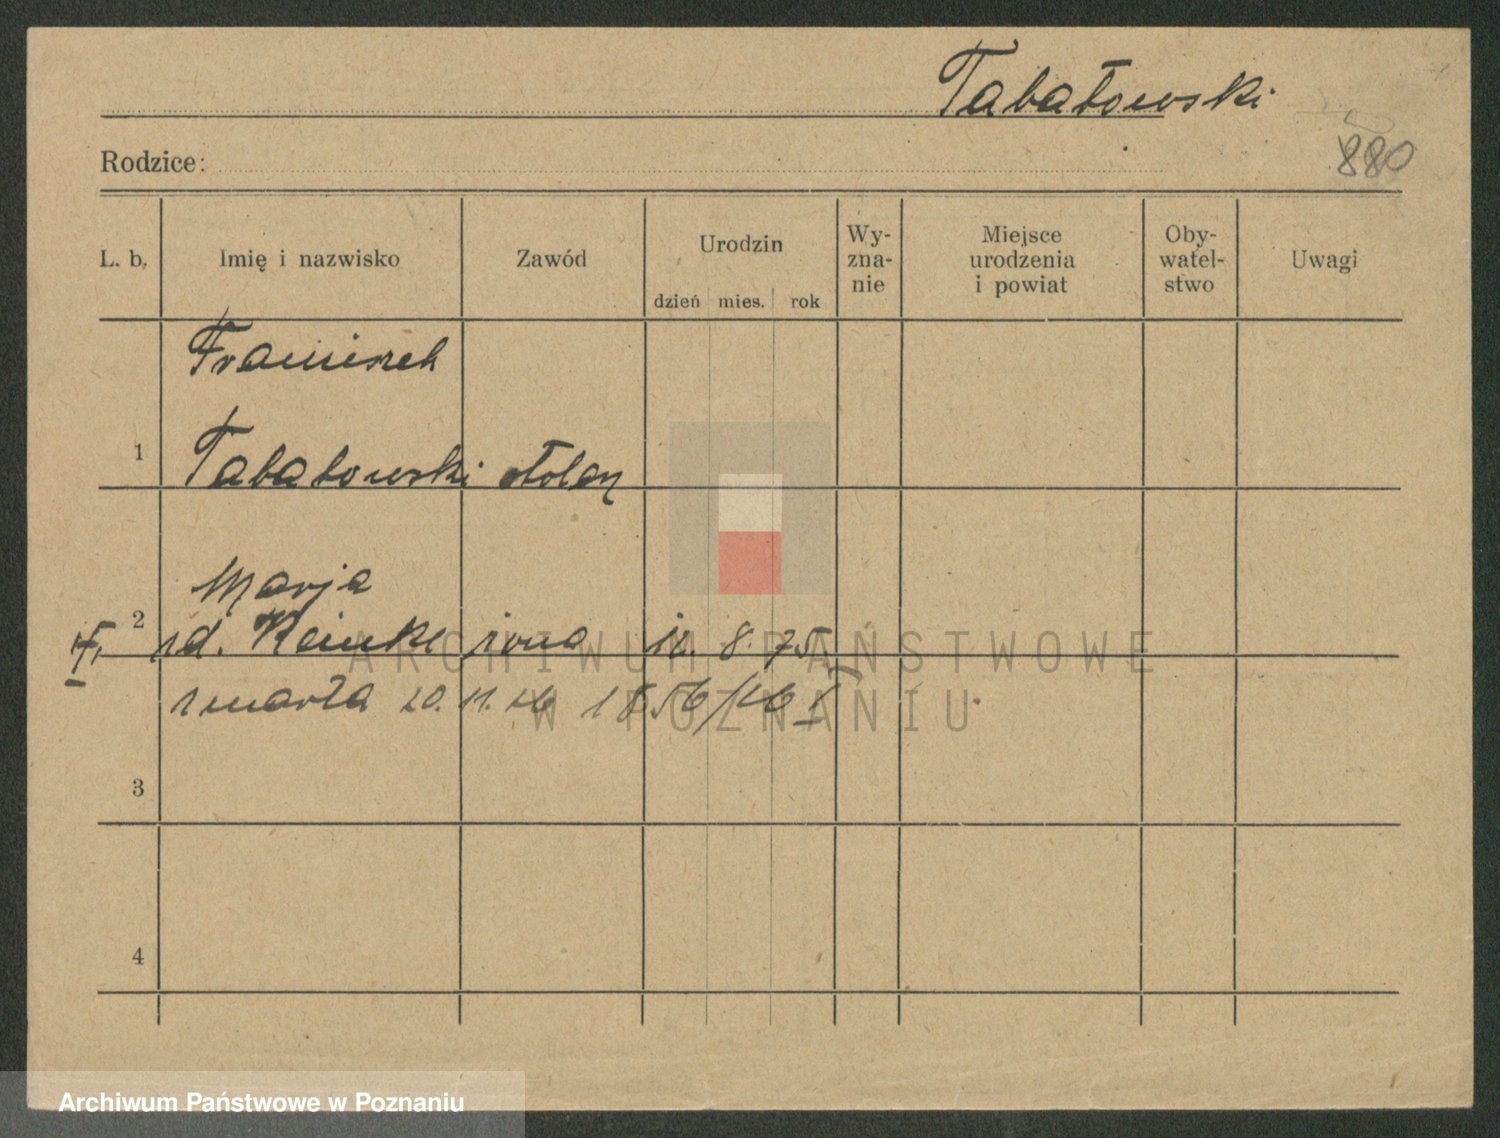 Tabatowski
Rodzice:
880
L. b. Imię i nazwisko Zawód Urodzin dzień mies. rok Wy-znanie Miejsce urodzenia i powiat Oby-watel-stwo Uwagi
Franciszek
1 Tabatowski stolarz
Marja
2 zd. Reinke żona 8. 75.
zmarła 20. 11. 26
3
4
ARCHIWUM PAŃSTWOWE
W POZNANIU
Archiwum Państwowe w Poznaniu